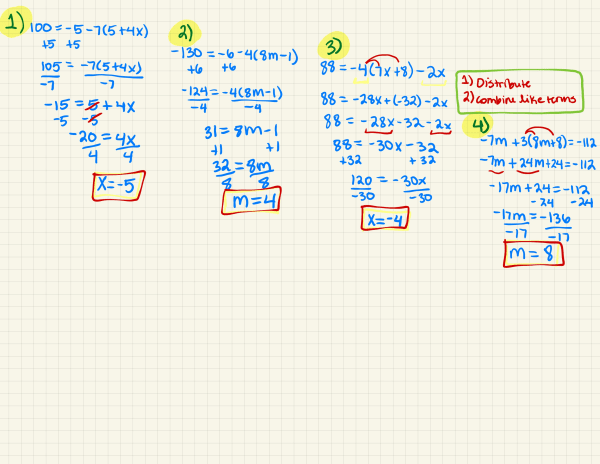 1) 100 = -5 -7(5+4x)
+5 +5
105 = -7(5+4x)
-7 -7
-15 = 5 + 4x
-5 -5
-20 = 4x
4 4
x = -5
2)
-130 = -6 -4(8m-1)
+6 +6
-124 = -4(8m-1)
-4 -4
31 = 8m-1
+1 +1
32 = 8m
8 8
m = 4
3)
88 = -4(7x+8) - 2x
88 = -28x+(-32)-2x
88 = -28x-32-2x
88 = -30x-32
+32 +32
120 = -30x
-30 -30
x = -4
1) Distribute
2) combine like terms
4)
-7m+3(8m+8)=-112
-7m+24m+24=-112
-17m+24=-112
-24 -24
-17m=-136
-17 -17
m = 8